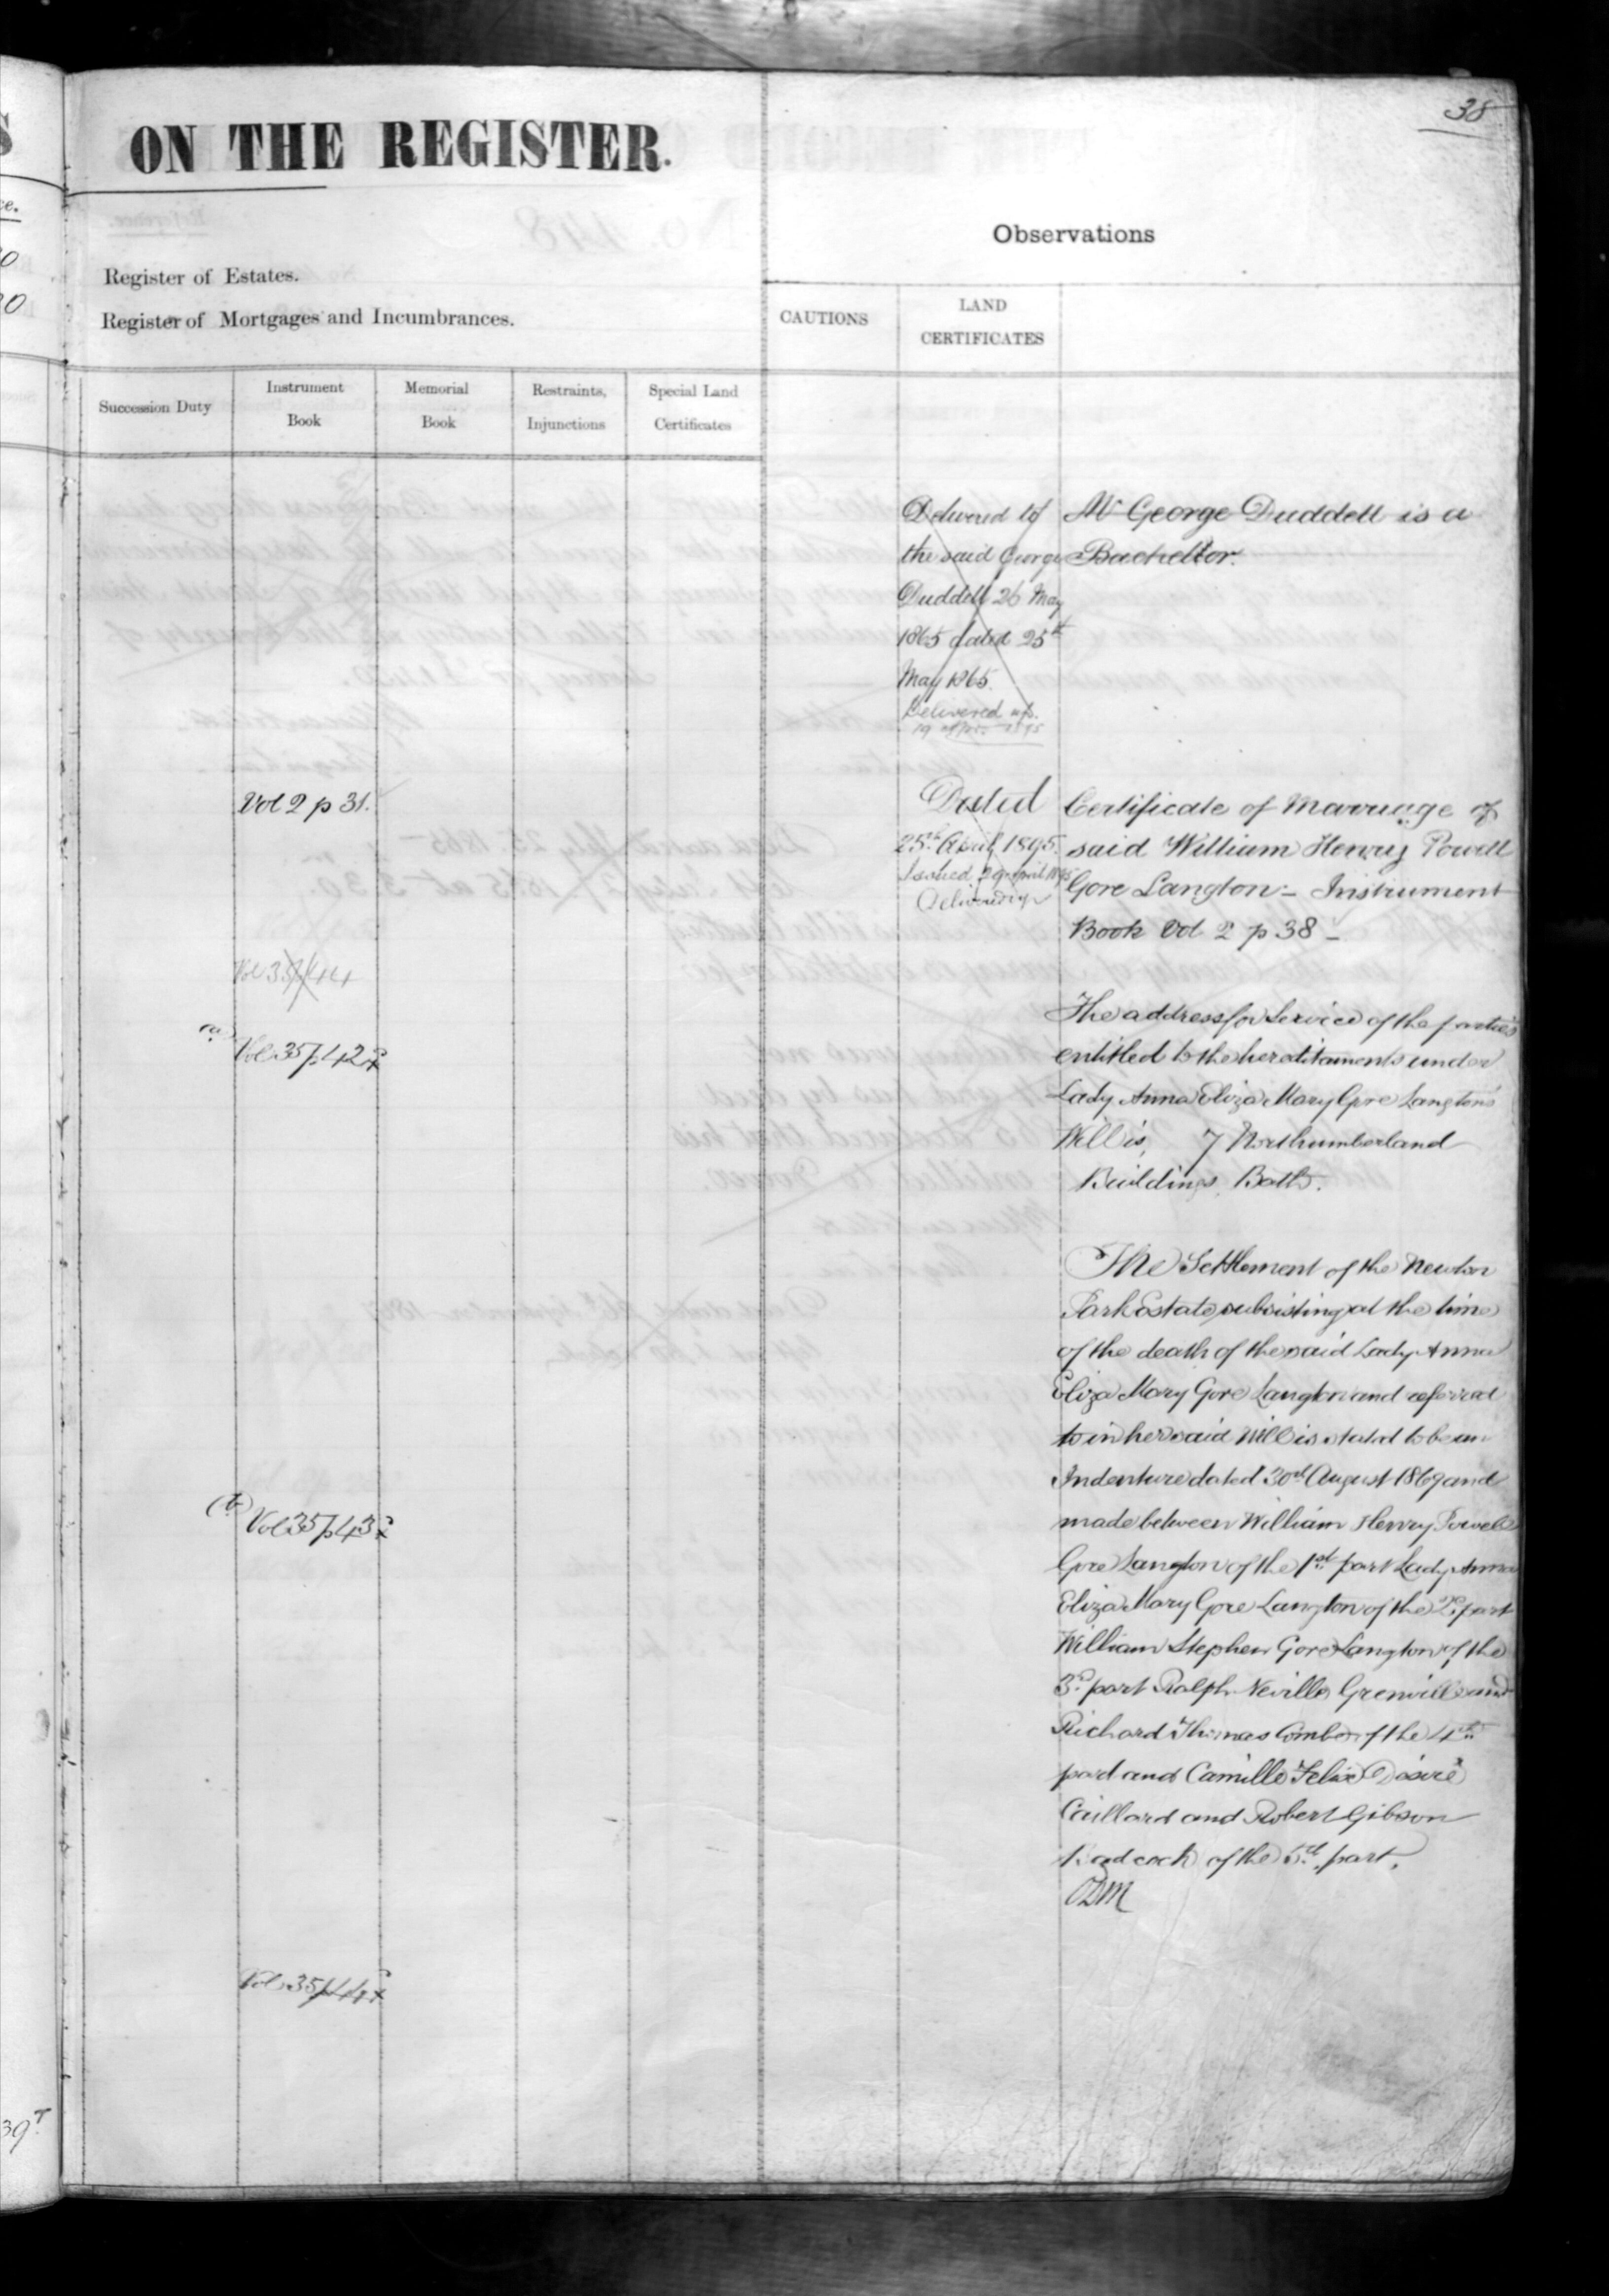 38
ON THE REGISTER.
Observations
Register of Estates.
Register of Mortgages and Incumbrances.
CAUTIONS
LAND
CERTIFICATES
Succession Duty
Instrument
Book
Memorial
Book
Restraints,
Injunctions
Special Land
Certificates
Delivered to
the said George
Duddell 26 May
1865 dated 25th
May 1865.
Delivered up.
19
Mr George Duddell is a
Bachellor.
Vol 2 p 31.
Dated
25th April 1895.
Issued April 1895
Delivered up
Certificate of Marriage of
said William Henry Powell
Gore Langton - Instrument
Book Vol 2 p 38 -
Vol 35 p 44
(a)
Vol 35 p 42
The address for Service of the parties
entitled to the hereditaments under
Lady Anna Eliza Mary Gore Langton's
Will is, 7 Northumberland
Buildings, Bath.
The Settlement of the Newton
Park Estate subsisting at the time
of the death of the said Lady Anna
Eliza Mary Gore Langton and referred
to in her said Will is stated to be an
Indenture dated 30th August 1869 and
(b)
Vol 35 p 43
made between William Henry Powell
Gore Langton of the 1st part Lady Anna
Eliza Mary Gore Langton of the 2d part
William Stephen Gore Langton of the
3d part Ralph Neville Grenville and
Richard Thomas Combe of the 4th
part and Camille Felix Désiré
Caillard and Robert Gibson
of the 5th part.
Vol 35 p 44
39